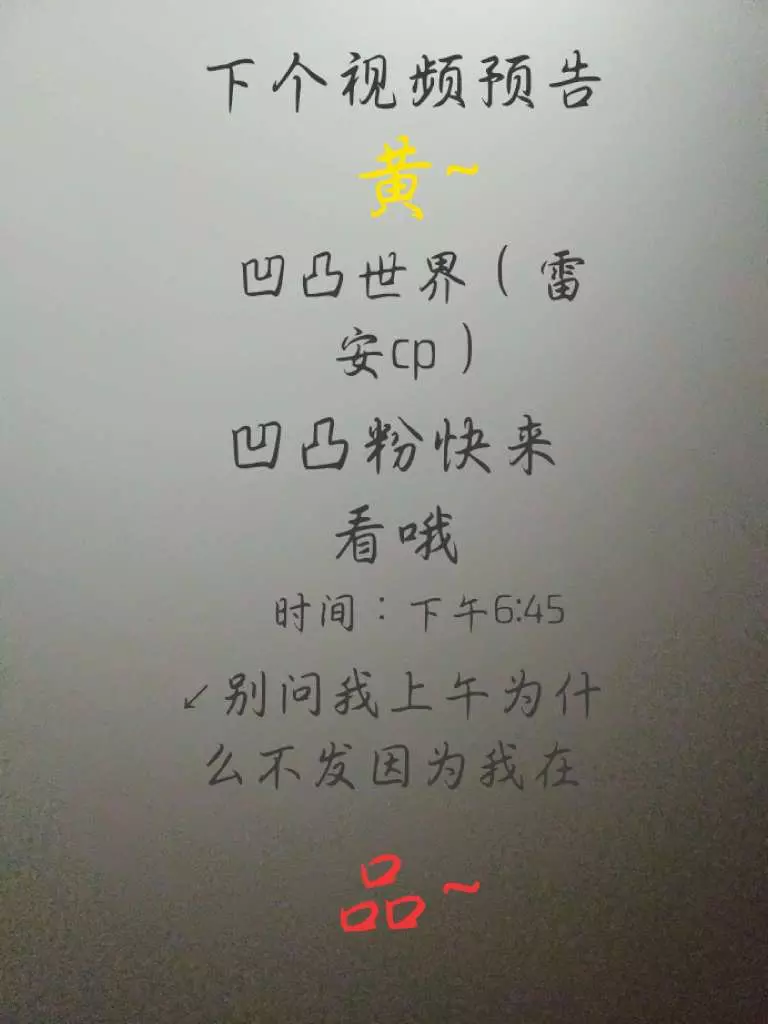 下个视频预告
黄~
凹凸世界（雷
安cp）
凹凸粉快来
看哦
时间：下午6:45
↙别问我上午为什
么不发因为我在
品~